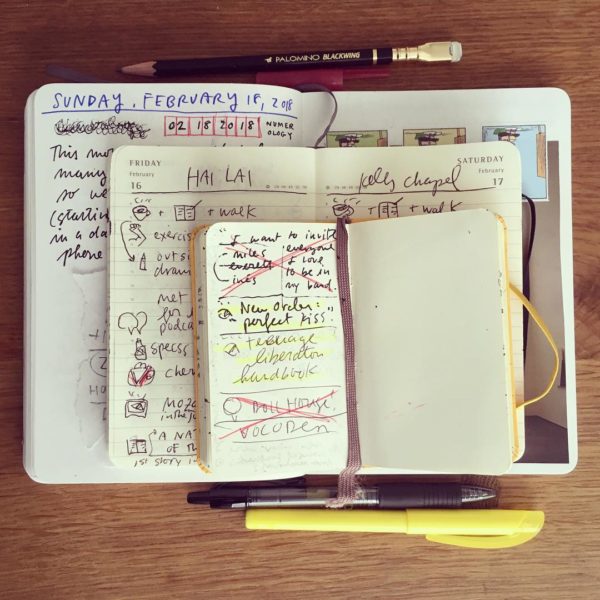 PALOMINO BLACKWING
SUNDAY, FEBRUARY 18, 2018
02 18 2018 NUMER
OLOGY
This mor
many
so we
(startin
in a da
phone
FRIDAY
February
16
HAI LAI
SATURDAY
February
17
Kelly chapel
+ + walk
+ + walk
exercis
outsi
met
for l
podca
specss
cher
MOZA
in the
A NA
OF T
1st story i
"I want to invite
miles
everyone
everett
I love
ines
to be in
my band.
"New Order:
perfect kiss."
teenage
liberation
handbook
DOLL HOUSE,
VOCODER